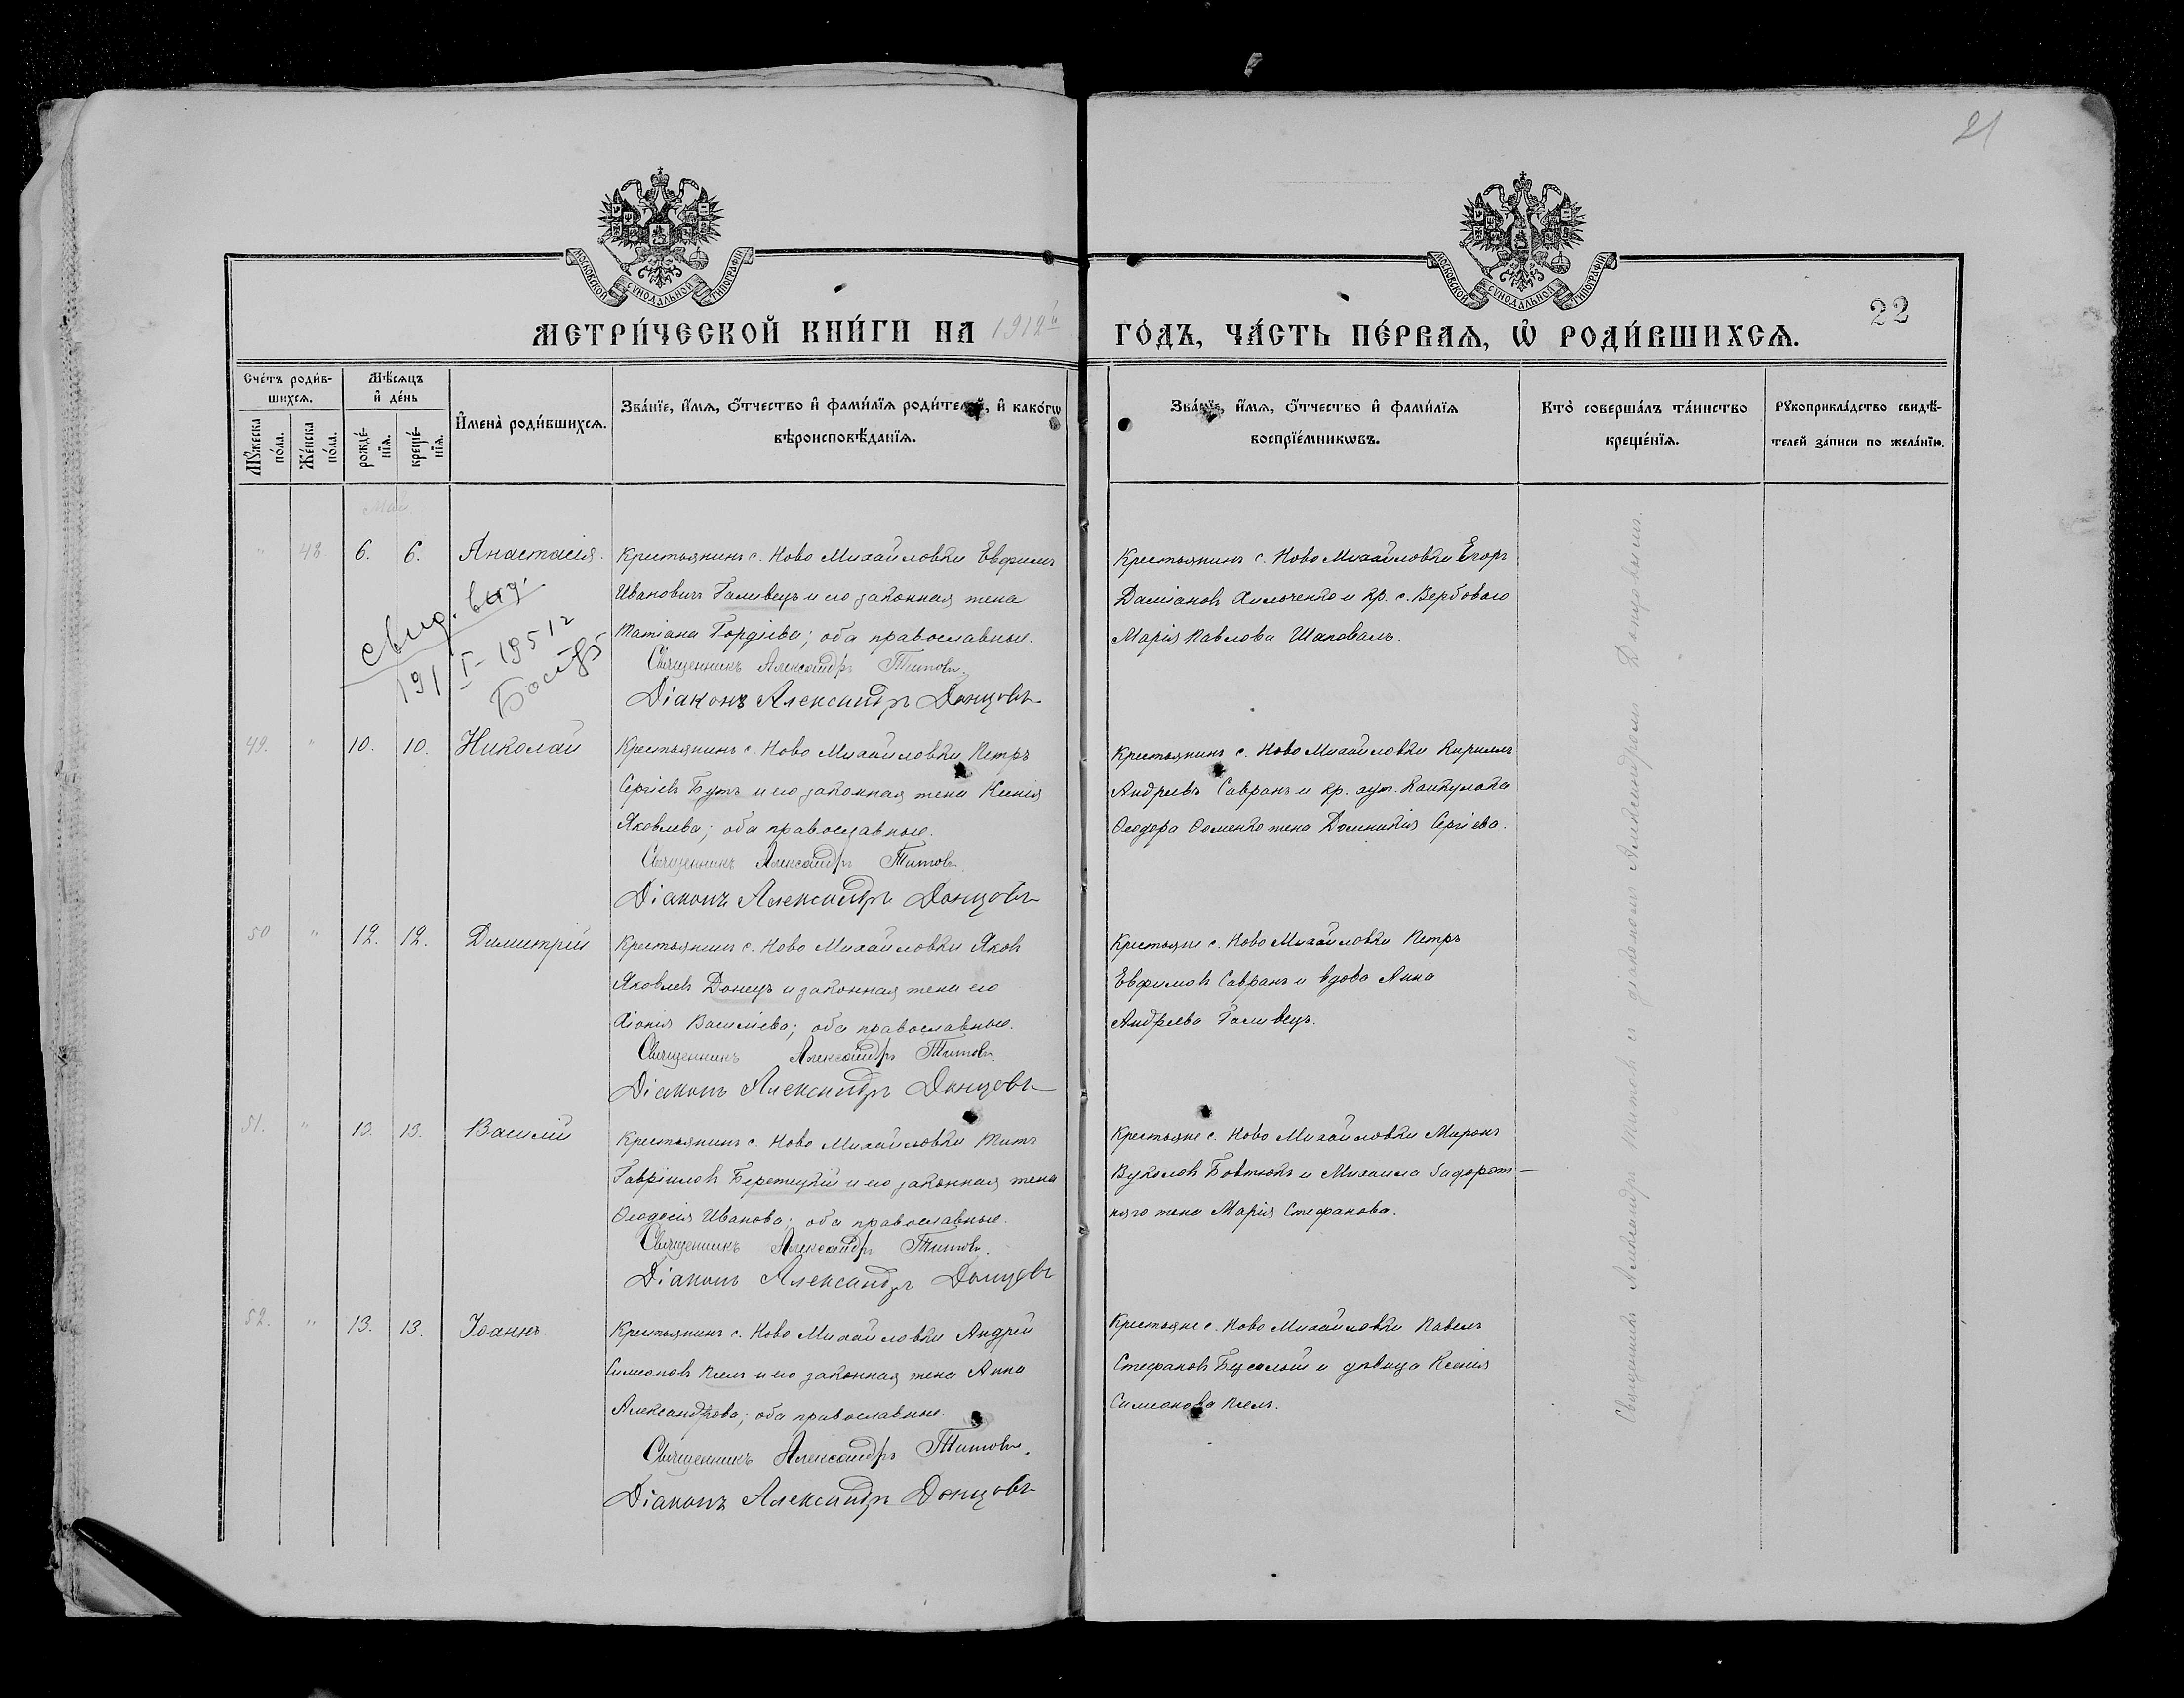 21
МОСКОВСКОЙ СѴНОДАЛЬНОЙ ТИПОГРАФІИ
МОСКОВСКОЙ СѴНОДАЛЬНОЙ ТИПОГРАФІИ
22
МЕТРИ́ЧЕСКОЙ КНИ́ГИ НА 1912й ГО́ДЪ, ЧА́СТЬ ПЕ́РВАѦ, Ѡ҆ РОДИ́ВШИХСѦ.
Сче́тъ роди́в-
шихсѧ.
Мѣ́сѧцъ
и҆ де́нь
Мꙋ́жеска
по́ла.
Же́нска
по́ла.
рожде́-
нїѧ.
креще́-
нїѧ.
И҆мена̀ роди́вшихсѧ.
Зва́нїе, и҆́мѧ, ѻ҆́тчество и҆ фами́лїѧ роди́телей, и҆ како́гѡ
вѣроисповѣ́данїѧ.
Зва́нїе, и҆́мѧ, ѻ҆́тчество и҆ фами́лїѧ
воспрїе́мникѡвъ.
Кто̀ соверша́лъ та́инство
креще́нїѧ.
Рꙋкоприкла́дство свидѣ́-
телей за́писи по жела́нїю.
Май
" 48 6. 6. Анастасія.
Крестьянинъ с. Ново Михайловки Евфимъ
Ивановичъ Галивецъ и его законная жена
Татіана Гордіева; оба православные.
Священникъ Александръ Титовъ.
Діаконъ Александръ Донцовъ
Крестьянинъ с. Ново Михайловки Егоръ
Даміановъ Хильченко и кр. с. Вербоваго
Марія Павлова Шаповалъ.
свид. выд.
191 I 1951 г
49. " 10. 10. Николай
Крестьянинъ с. Ново Михайловки Петръ
Сергіевъ Бутъ и его законная жена Ксенія
Яковлева; оба православные.
Священникъ Александръ Титовъ
Діаконъ Александръ Донцовъ
Крестьянинъ с. Ново Михайловки Кириллъ
Андреевъ Савранъ и кр. хут.
Ѳеодора Ѳоменко жена Домникія Сергіева.
50 " 12. 12. Димитрій
Крестьянинъ с. Ново Михайловки Яковъ
Яковлевъ Донецъ и законная жена его
Хіонія Василіева; оба православные.
Священникъ Александръ Титовъ.
Діаконъ Александръ Донцовъ
Крестьяне с. Ново Михайловки Петръ
Евфимовъ Савранъ и вдова Анна
Андреева Галивецъ.
51. " 13. 13. Василій
Крестьянинъ с. Ново Михайловки Титъ
Гавріиловъ Бережецкій и его законная жена
Ѳеодосія Иванова; оба православные.
Священникъ Александръ Титовъ.
Діаконъ Александръ Донцовъ
Крестьяне с. Ново Михайловки Миронъ
Вуколовъ Бовтюкъ и Михаила Задорож-
няго жена Марія Стефанова.
52. " 13. 13. Іоаннъ.
Крестьянинъ с. Ново Михайловки Андрей
Симеоновъ и его законная жена Анна
Александрова; оба православные.
Священникъ Александръ Титовъ.
Діаконъ Александръ Донцовъ
Крестьяне с. Ново Михайловки Павелъ
Стефановъ и дѣвица Ксенія
Симеонова
Священникъ Александръ Титовъ съ діакономъ Александромъ Донцовымъ.